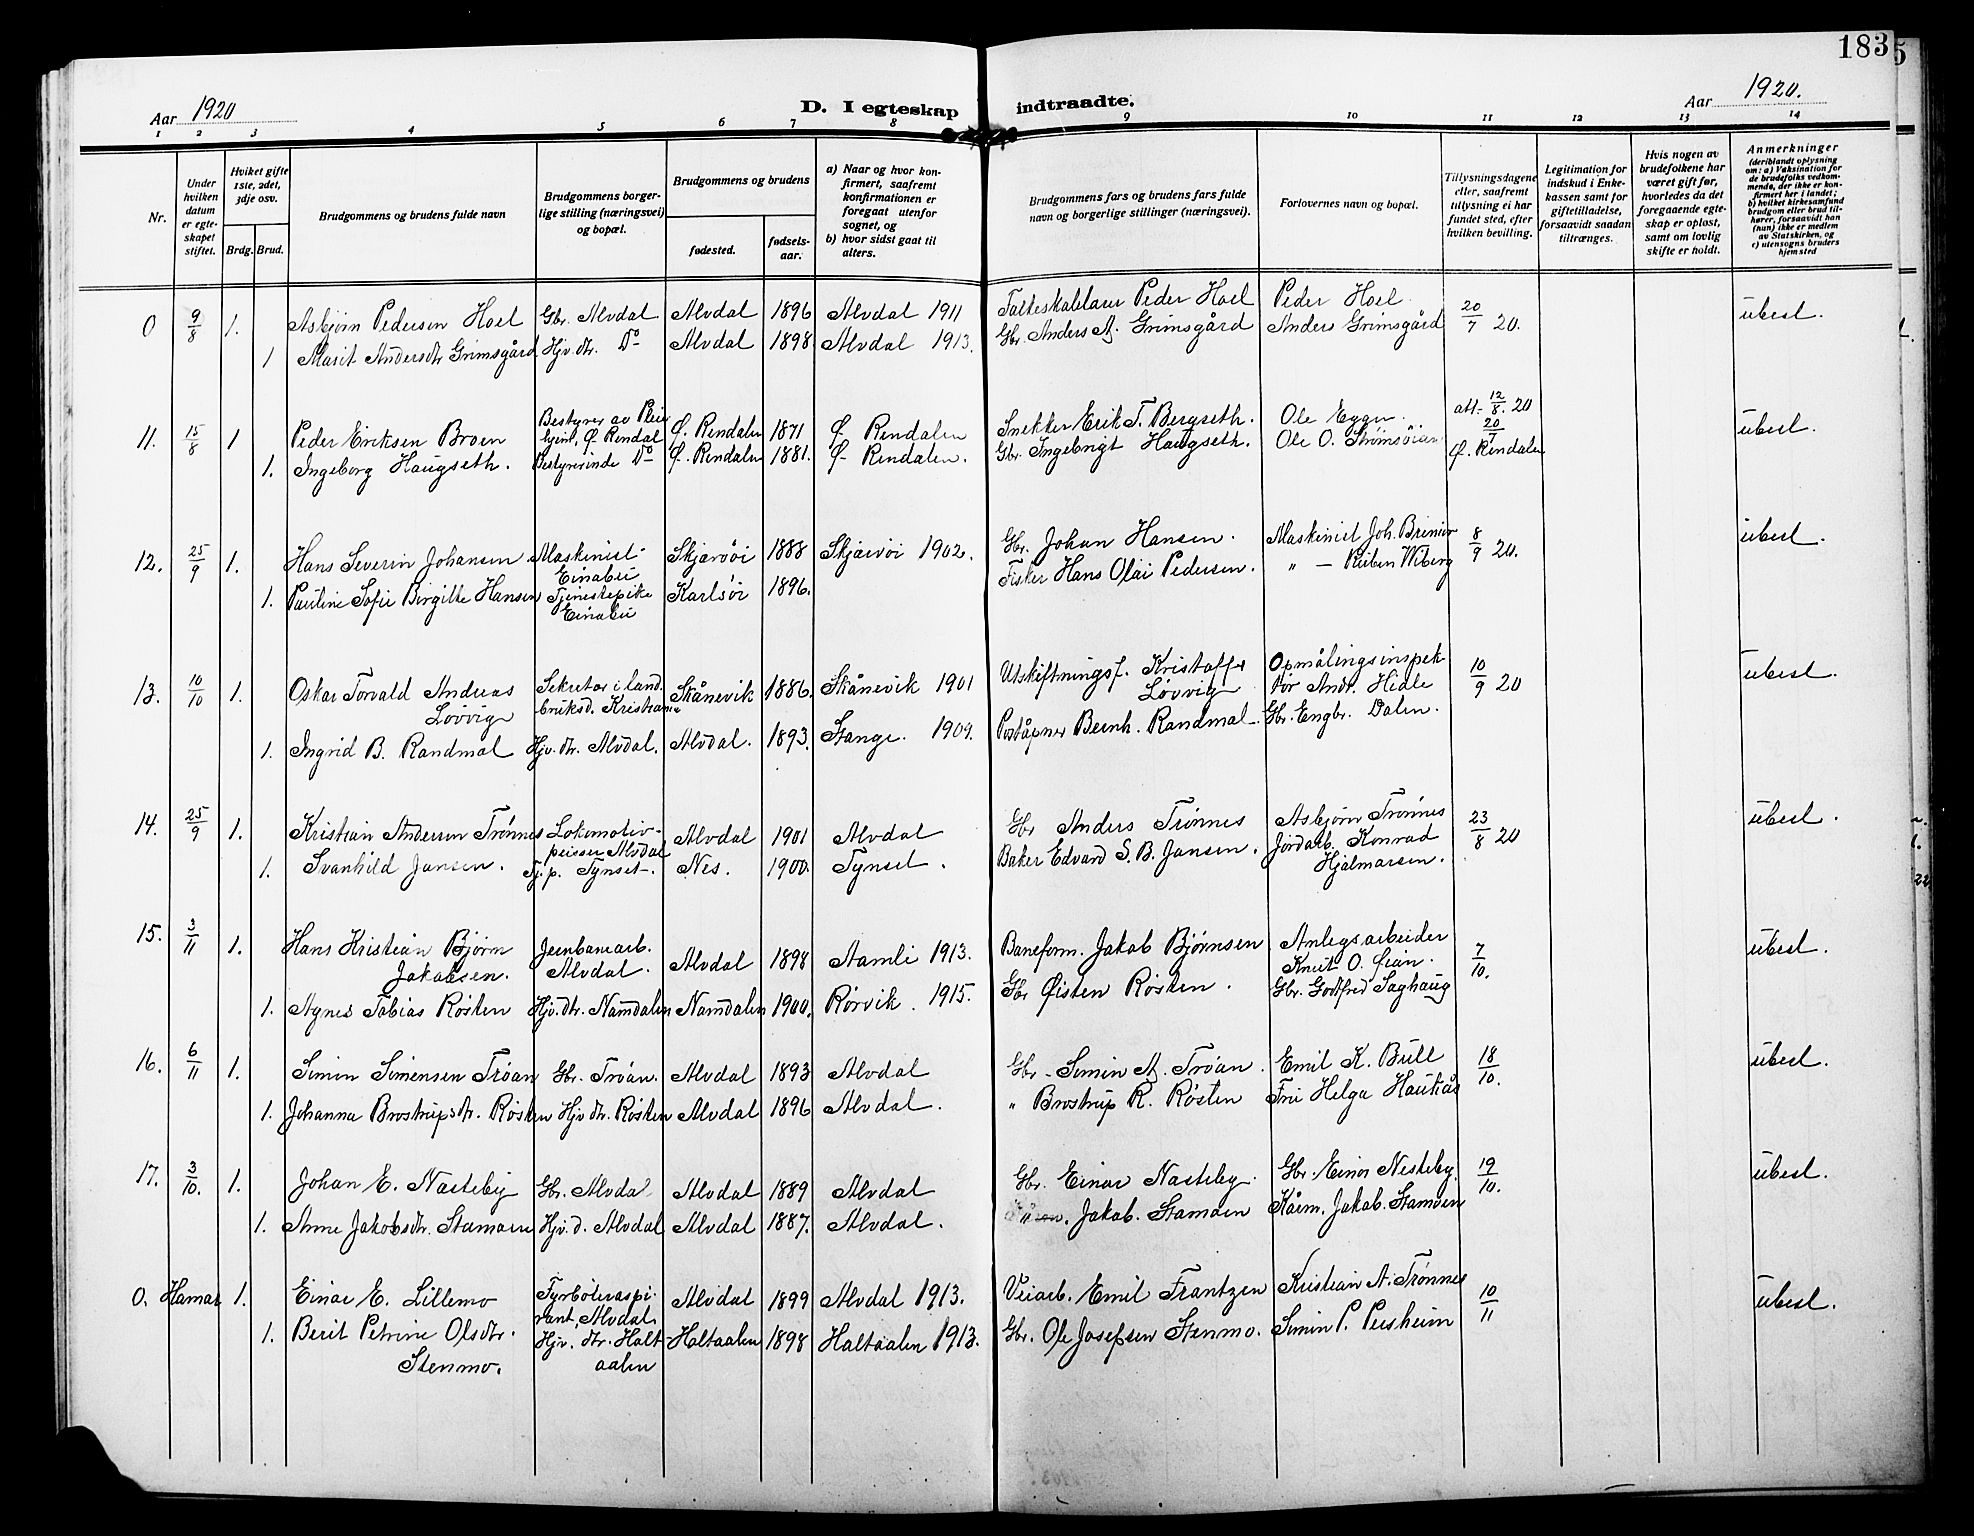 183
5
Aar 1920
D. I egteskap indtraadte.
Aar 1920.
1 2 3 4 5 6 7 8 9 10 11 12 13 14
Nr.
Under hvilken datum er egteskapet stiftet.
Hviket gifte 1ste, 2det, 3dje osv.
Brdg. Brud.
Brudgommens og brudens fulde navn
Brudgommens borgerlige stilling (næringsvei) og bopæl.
Brudgommens og brudens
fødested.
fødselsaar.
a) Naar og hvor konfirmert, saafremt konfirmationen er foregaat utenfor sognet, og
b) hvor sidst gaat til alters.
Brudgommens fars og brudens fars fulde navn og borgerlige stillinger (næringsvei).
Forlovernes navn og bopæl.
Tillysningsdagene eller, saafremt tillysning ei har fundet sted, efter hvilken bevilling.
Legitimation for indskud i Enkekassen samt for giftetilladelse, forsaavidt saadan tiltrænges.
Hvis nogen av brudefolkene har været gift før, hvorledes da det foregaaende egteskap er opløst, samt om lovlig skifte er holdt.
Anmerkninger
(deriblandt oplysning om: a) Vaksination for de brudefolks vedkommende, der ikke er konfirmert her i landet; b) hvilket kirkesamfund brudgom eller brud tilhører, forsaavidt han (hun) ikke er medlem av Statskirken, og c) utensogns bruders hjemsted
0 9/8 1. Asbjørn Pedersen Hoel Gbr. Alvdal Alvdal 1896 Alvdal 1911 Peder Hoel Peder Hoel 20/7 20. ubesl.
1 Marit Andersdtr Grimsgård Hjv. dtr. Do Alvdal 1898 Alvdal 1913. Gbr. Anders A. Grimsgård Anders Grimsgård
11. 15/8 1 Peder Eriksen Broen Bestyrer av Pleiehjml, Ø. Rendal Ø. Rendalen 1871 Ø Rendalen Snekker Erik T. Bergseth. Ole Eggen. att. 12/8. 20 ubesl.
1. Ingeborg Haugseth. Bestyrerinde Do Ø. Rendalen 1881. Ø- Rendalen. Gbr. Ingebrigt Haugseth. Ole O. Strømsøien 20/7 Ø. Rendalen
12. 25/9 1. Hans Severin Johansen Maskinist Einabu Skjærvöi 1888 Skjærvöi 1902. Gbr. Johan Hansen. Maskinist Joh. 8/9 20. ubesl.
1. Pauline Sofie Birgitte Hansen Tjenestepike Einabu Karlsöi 1896. Fisker Hans Olai Pedersen. " — Ruben Wiberg
13. 10/10 1. Oskar Torvald Andreas Løvvig Sekretær i landbruksd. Kristiania Skånevik 1886. Skånevik 1901 Utskiftningsf. Kristoffer Løvvig Opmålingsinspektør Andr. Hidle 10/9 20 ubesl.
1. Ingrid B. Randmæl Hjv. dtr. Alvdal. Alvdal. 1893. Stange. 1909. Poståpner Bernh. Randmæl. Gbr. Engbr. Dalen.
14. 25/9 1. Kristian Andersen Trønnes Lokomotivpusser Alvdal Alvdal 1901 Alvdal Gbr Anders Trønnes Asbjørn Trønnes 23/8 20 ubesl.
1. Svanhild Jansen. Tj. p. Tynset. Nes. 1900. Tynset. Baker Edvard S. B. Jansen. Jordarb. Konrad Hjalmarsen.
15. 3/11 1. Hans Kristian Bjørn Jakobsen. Jernbanearb. Alvdal. Alvdal 1898 Aamli 1913. Baneform. Jakob Bjørnsen Anlegsarbeider Knut O. 7/10. ubesl.
1. Agnes Tobias Røsten Hjv. dtr. Namdalen Namdalen 1900. Rørvik. 1915. Gbr Øisten Røsten. Gbr. Godtfred Saghaug
16. 6/11 1. Simen Simensen Trøan Gbr. Trøan. Alvdal 1893 Alvdal Gbr. Simen A. Trøan. Emil K. Bull 18/10. ubesl.
1. Johanna Brostrupsdtr. Røsten Hjv dtr. Røsten Alvdal 1896 Alvdal. " Brostrup R. Røsten Fru Helga Haukås
17. 3/10. 1. Johan E. Næsteby Gbr. Alvdal Alvdal 1889 Alvdal Gbr. Einar Næsteby. Gbr. Einar Nesteby. 19/10. ubesl.
1. Anne Jakobsdtr. Stamoen Hjv. d. Alvdal Alvdal 1887. Alvdal. Jakob. Stamoen Jakob. Stamoen
0. Hamar 1. Einar E. Lillemo Fyrbøteraspirant, Alvdal Alvdal 1899 Alvdal 1913. Veiarb. Emil Frantzen Kristian A. Trønnes 10/11 ubesl.
1. Berit Petrine Olsdtr. Stenmo. Hjv. dtr. Haltaalen Haltaalen 1898 Haltaalen 1913. Gbr. Ole Josefsen Stenmo. Simen P.